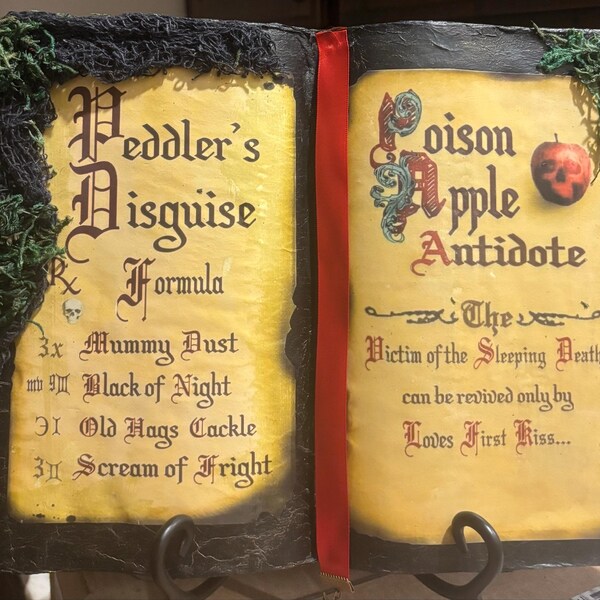 Peddler's
Disguise
Rx Formula
3x Mummy Dust
Black of Night
Old Hags Cackle
Scream of Fright
Poison
Apple
Antidote
The
Victim of the Sleeping Death
can be revived only by
Loves First Kiss...